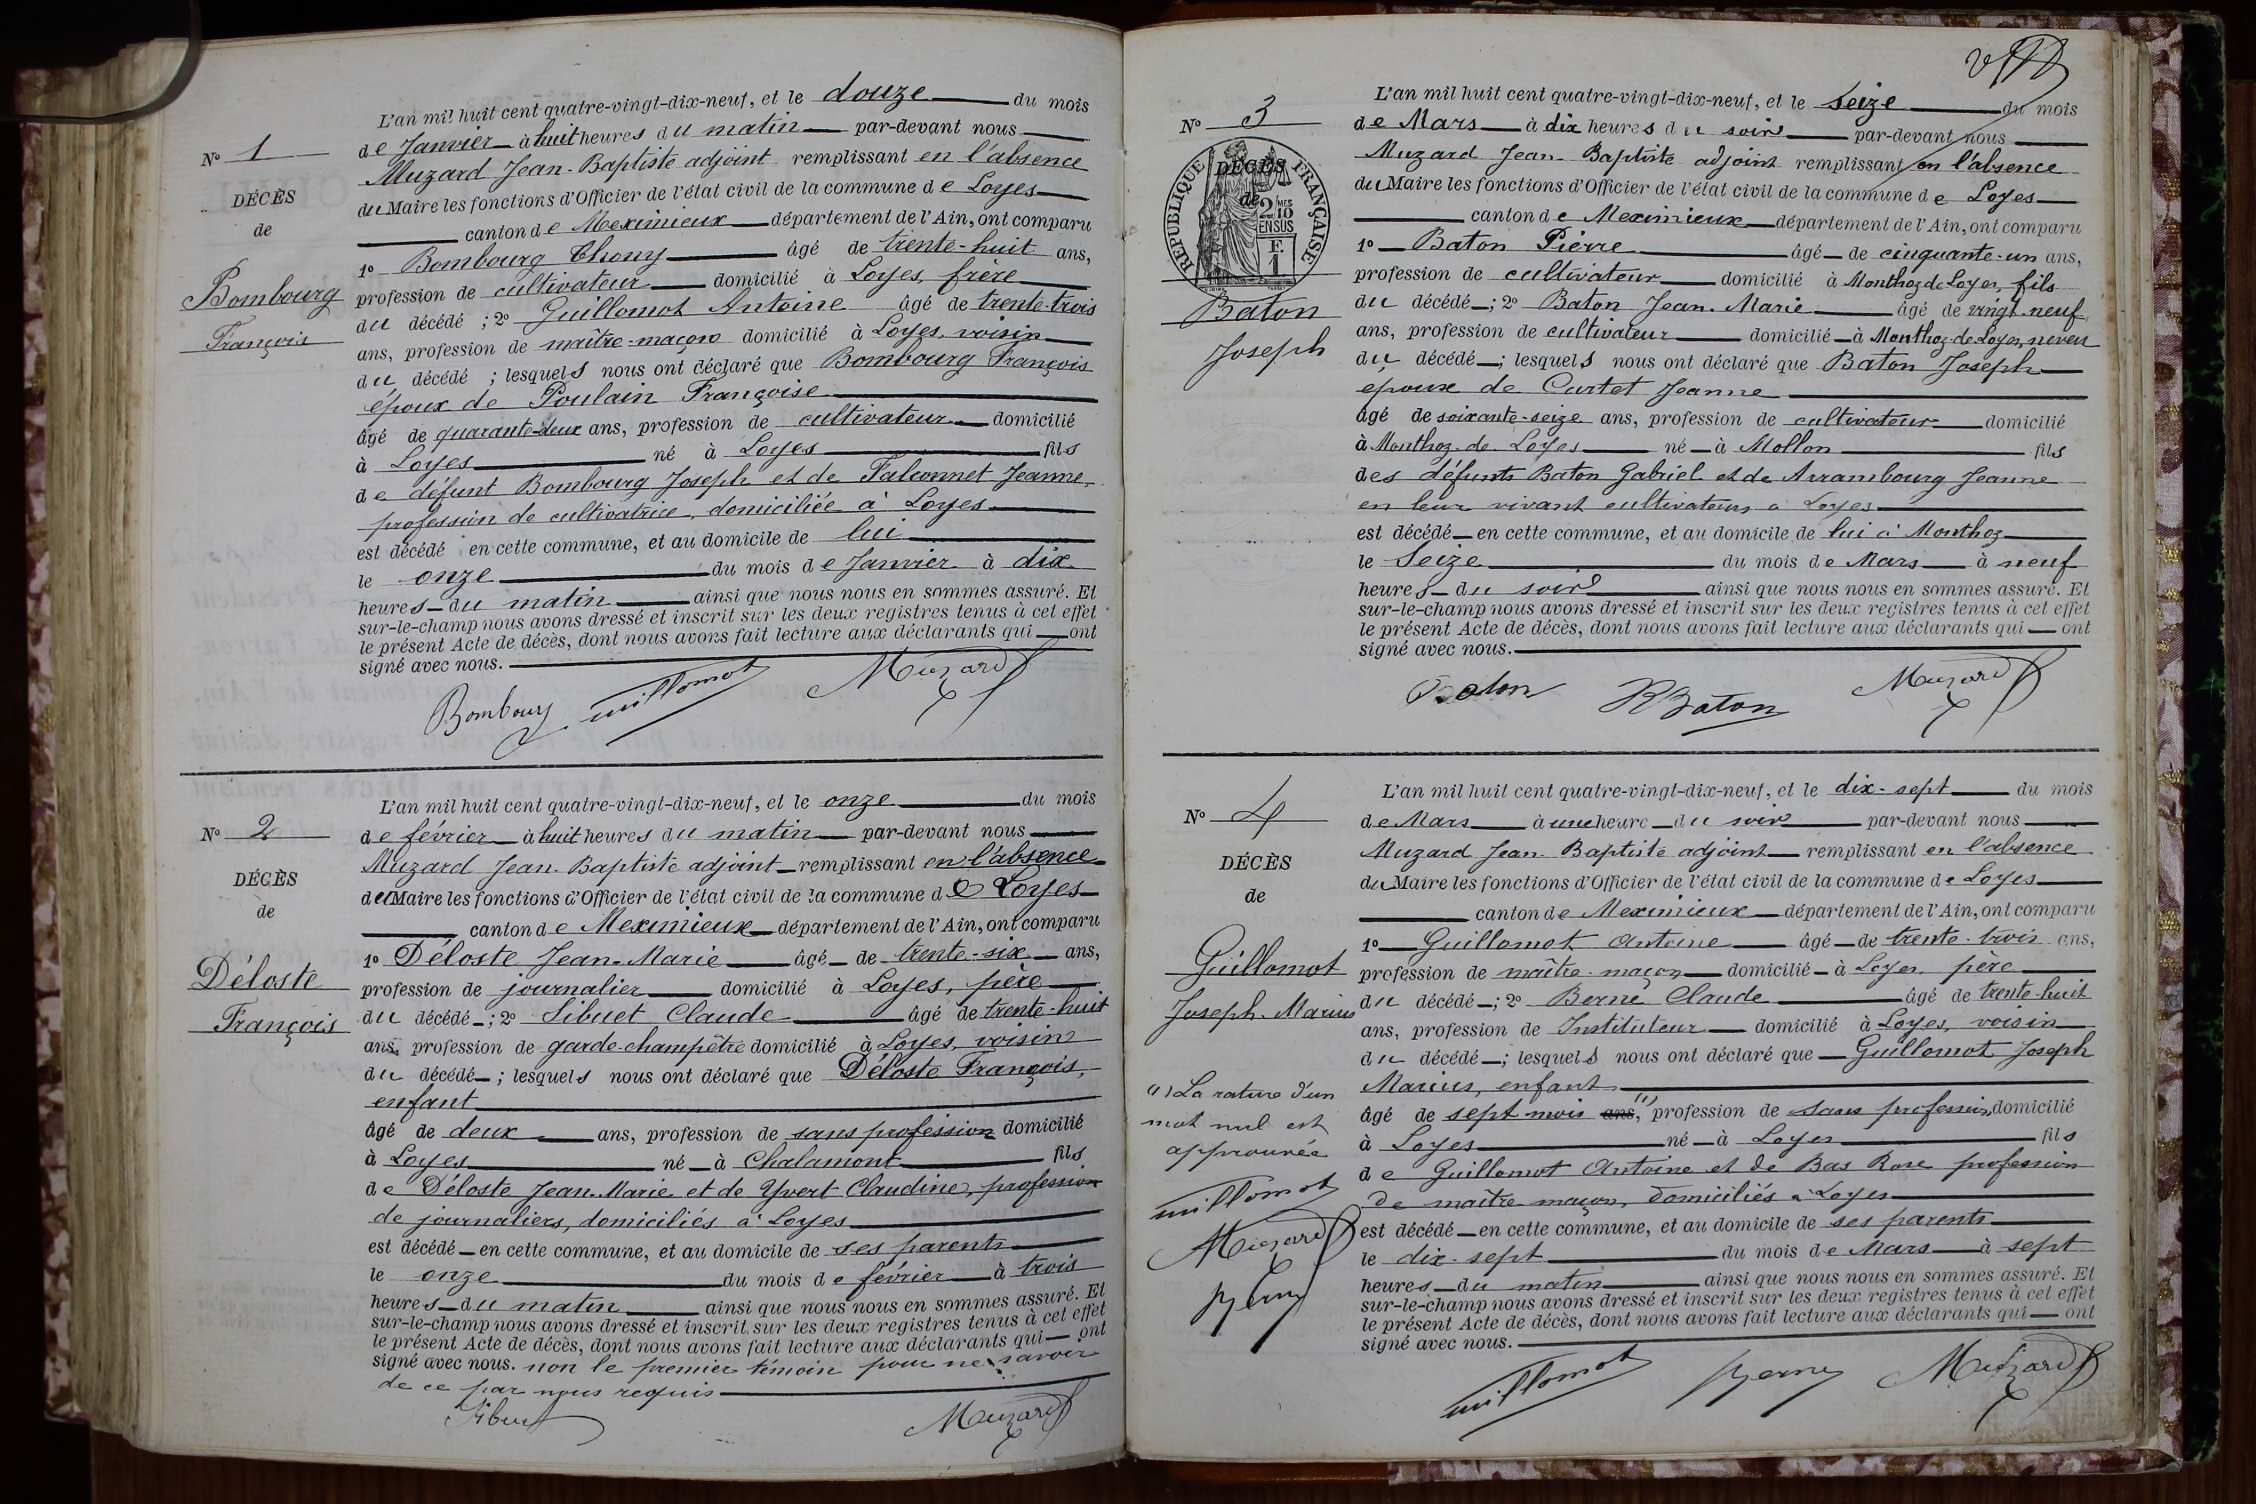 L'an mil huit cent quatre-vingt-dix-neuf, et le douze du mois
de Janvier à huit heures du matin par-devant nous
Muzard Jean-Baptiste adjoint remplissant en l'absence
du Maire les fonctions d'Officier de l'état civil de la commune de Loyes
canton de Meximieux département de l'Ain, ont comparu
1º Bombourg Thony âgé de trente-huit ans,
profession de cultivateur domicilié à Loyes, frère
du décédé ; 2º Guillomot Antoine âgé de trente-trois
ans, profession de maître-maçon domicilié à Loyes, voisin
du décédé ; lesquels nous ont déclaré que Bombourg François
époux de Poulain Françoise
âgé de quarante-deux ans, profession de cultivateur domicilié
à Loyes né à Loyes fils
de défunt Bombourg Joseph et de Falconnet Jeanne,
profession de cultivatrice, domiciliée à Loyes
est décédé en cette commune, et au domicile de lui
le onze du mois de Janvier à dix
heures du matin ainsi que nous nous en sommes assuré. Et
sur-le-champ nous avons dressé et inscrit sur les deux registres tenus à cet effet
le présent Acte de décès, dont nous avons fait lecture aux déclarants qui ont
signé avec nous.
Nº 1
DÉCÈS
de
Bombourg
François
Bombourg Guillomot Muzard
L'an mil huit cent quatre-vingt-dix-neuf, et le onze du mois
de février à huit heures du matin par-devant nous
Muzard Jean-Baptiste adjoint remplissant en l'absence
du Maire les fonctions d'Officier de l'état civil de la commune de Loyes
canton de Meximieux département de l'Ain, ont comparu
1º Déloste Jean-Marie âgé de trente-six ans,
profession de journalier domicilié à Loyes, père
du décédé ; 2º Sibuet Claude âgé de trente-huit
ans, profession de garde-champêtre domicilié à Loyes, voisin
du décédé ; lesquels nous ont déclaré que Déloste François,
enfant
âgé de deux ans, profession de sans profession domicilié
à Loyes né à Chalamont fils
de Déloste Jean-Marie et de Yvert Claudine, profession
de journaliers, domiciliés à Loyes
est décédé en cette commune, et au domicile de ses parents
le onze du mois de février à trois
heures du matin ainsi que nous nous en sommes assuré. Et
sur-le-champ nous avons dressé et inscrit sur les deux registres tenus à cet effet
le présent Acte de décès, dont nous avons fait lecture aux déclarants qui ont
signé avec nous. non le premier témoin pour ne savoir
de ce par nous requis
Nº 2
DÉCÈS
de
Déloste
François
Sibuet Muzard
L'an mil huit cent quatre-vingt-dix-neuf, et le seize du mois
de Mars à dix heures du soir par-devant nous
Muzard Jean-Baptiste adjoint remplissant en l'absence
du Maire les fonctions d'Officier de l'état civil de la commune de Loyes
canton de Meximieux département de l'Ain, ont comparu
1º Baton Pierre âgé de cinquante-un ans,
profession de cultivateur domicilié à Monthoz de Loyes, fils
du décédé ; 2º Baton Jean-Marie âgé de vingt-neuf
ans, profession de cultivateur domicilié à Monthoz-de-Loyes, neveu
du décédé ; lesquels nous ont déclaré que Baton Joseph
époux de Curtet Jeanne
âgé de soixante-seize ans, profession de cultivateur domicilié
à Monthoz-de-Loyes né à Mollon fils
des défunts Baton Gabriel et de Arrambourg Jeanne
en leur vivant cultivateurs à Loyes
est décédé en cette commune, et au domicile de lui à Monthoz
le Seize du mois de Mars à neuf
heures du soir ainsi que nous nous en sommes assuré. Et
sur-le-champ nous avons dressé et inscrit sur les deux registres tenus à cet effet
le présent Acte de décès, dont nous avons fait lecture aux déclarants qui ont
signé avec nous.
Nº 3
RÉPUBLIQUE FRANÇAISE
2 MES 10 EN SUS
F. 1
DÉCÈS
de
Baton
Joseph
Baton Baton Muzard
L'an mil huit cent quatre-vingt-dix-neuf, et le dix-sept du mois
de Mars à une heure du soir par-devant nous
Muzard Jean-Baptiste adjoint remplissant en l'absence
du Maire les fonctions d'Officier de l'état civil de la commune de Loyes
canton de Meximieux département de l'Ain, ont comparu
1º Guillomot Antoine âgé de trente-trois ans,
profession de maître-maçon domicilié à Loyes, père
du décédé ; 2º Berne Claude âgé de trente-huit
ans, profession de Instituteur domicilié à Loyes, voisin
du décédé ; lesquels nous ont déclaré que Guillomot Joseph
Marius, enfant
âgé de sept mois ans, (1) profession de sans profession domicilié
à Loyes né à Loyes fils
de Guillomot Antoine et de Bas Rose profession
de maître maçon, domiciliés à Loyes
est décédé en cette commune, et au domicile de ses parents
le dix-sept du mois de Mars à sept
heures du matin ainsi que nous nous en sommes assuré. Et
sur-le-champ nous avons dressé et inscrit sur les deux registres tenus à cet effet
le présent Acte de décès, dont nous avons fait lecture aux déclarants qui ont
signé avec nous.
Nº 4
DÉCÈS
de
Guillomot
Joseph-Marius
(1) La rature d'un
mot nul est
approuvée
Guillomot
Muzard
Berne
Guillomot Berne Muzard